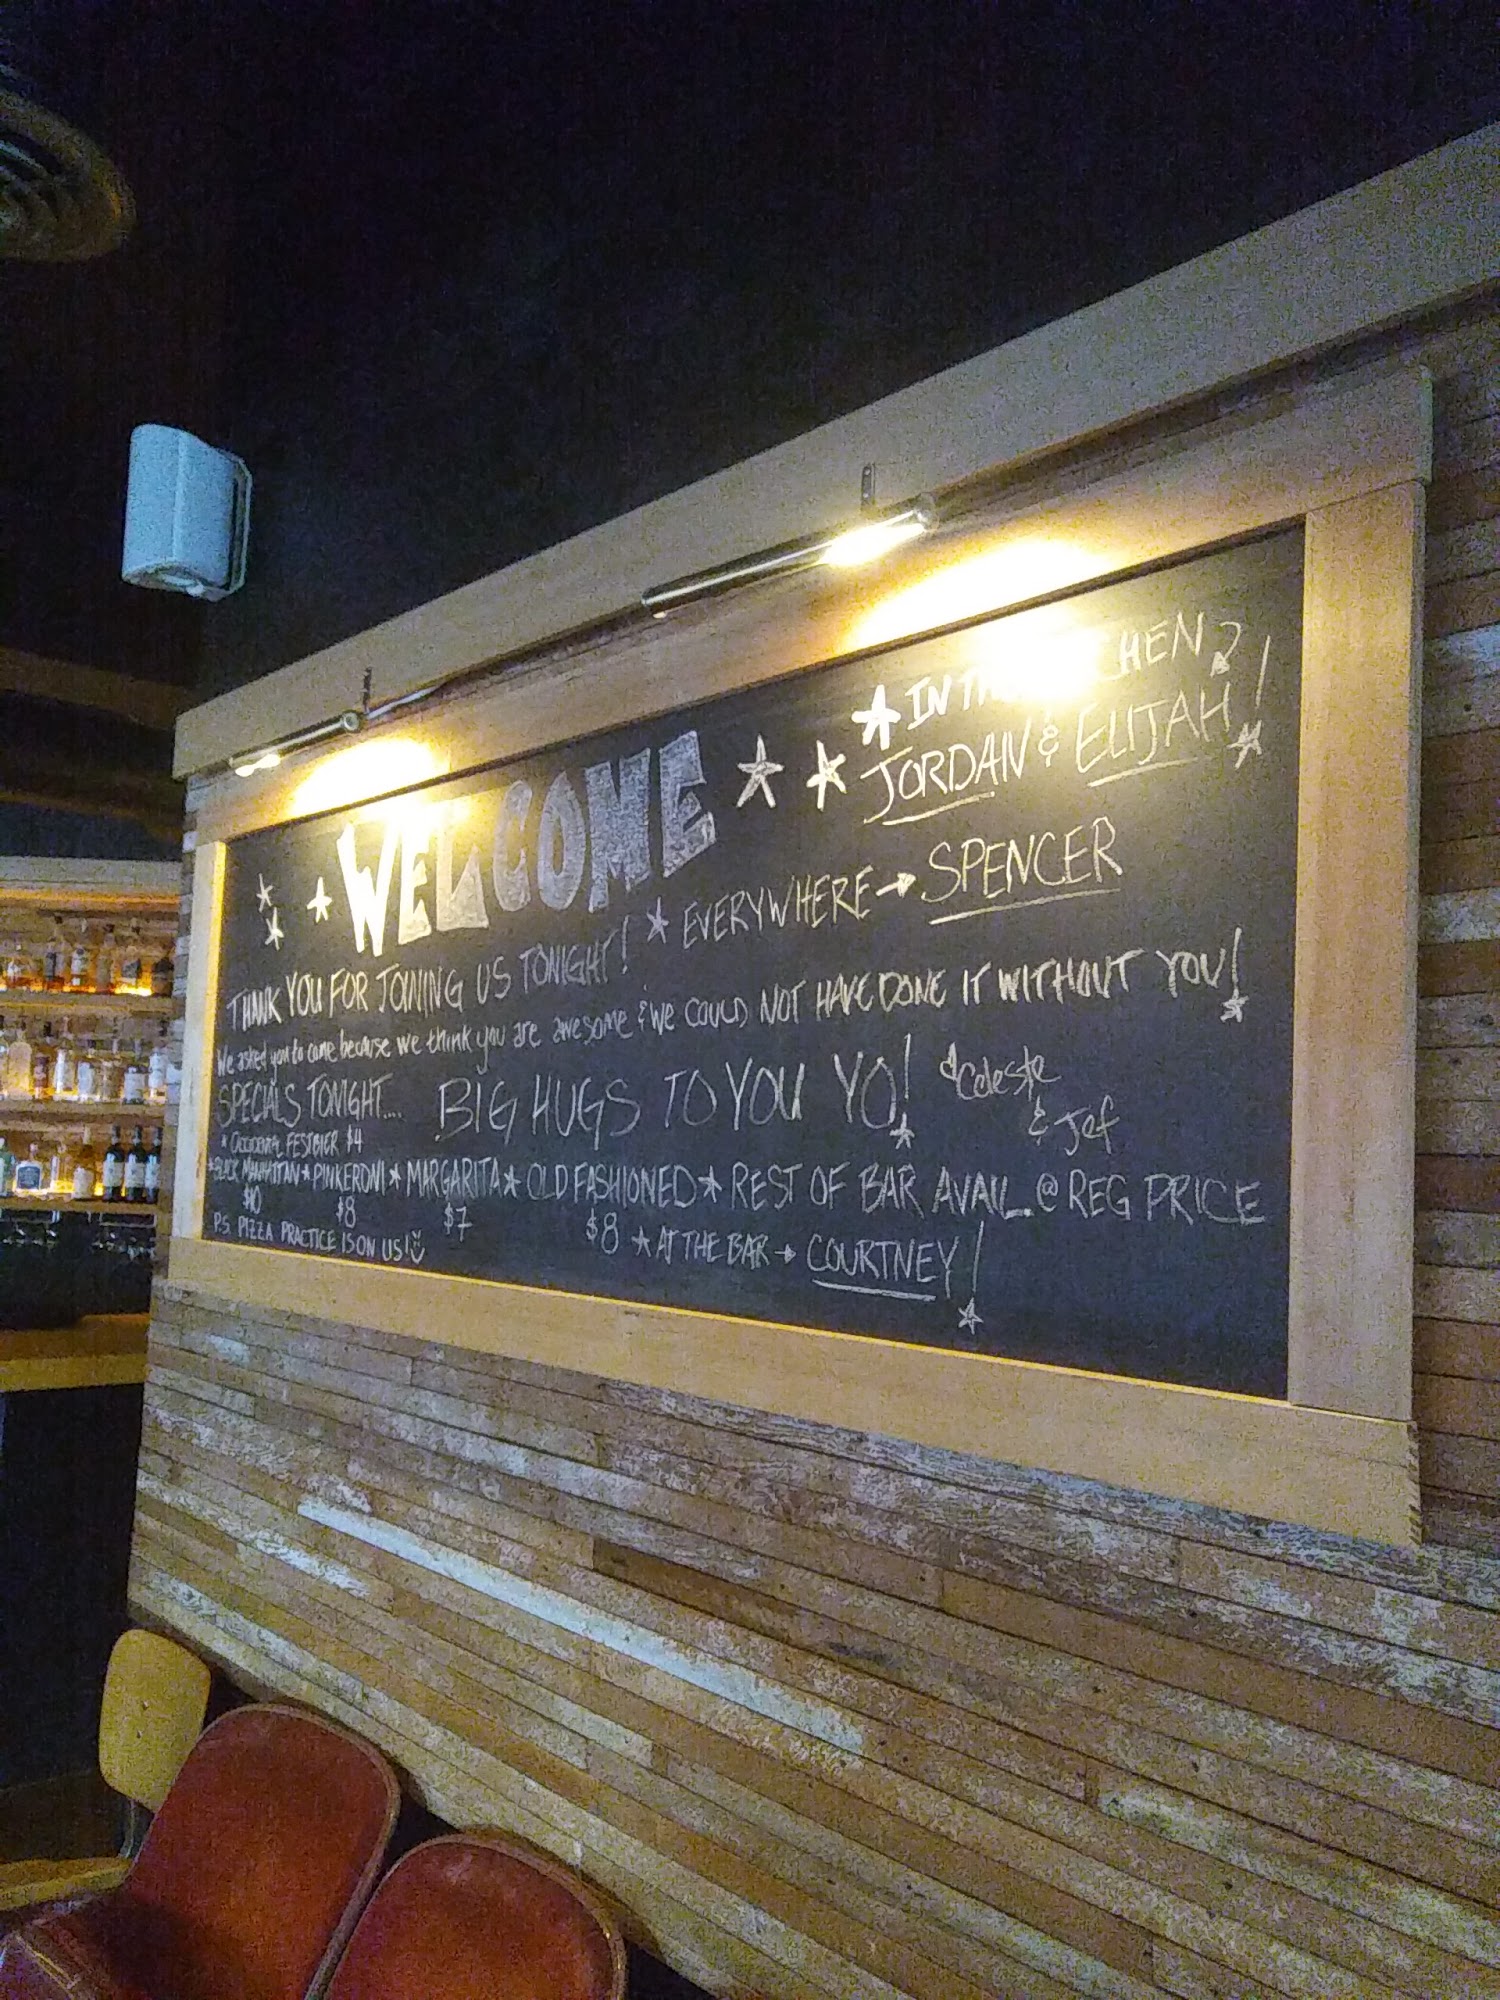 WELCOME
IN THE KITCHEN
JORDAN & ELIJAH!
EVERYWHERE → SPENCER
THANK YOU FOR JOINING US TONIGHT!
We asked you to come because we think you are awesome & WE COULD NOT HAVE DONE IT WITHOUT YOU!
BIG HUGS TO YOU YO!
Celeste
& Jef
SPECIALS TONIGHT....
OCCIDENTAL FESTBIER $4
BLACK MANHATTAN ★ PINKERONI ★ MARGARITA ★ OLD FASHIONED ★ REST OF BAR AVAIL. @ REG PRICE
$10 $8 $7 $8
AT THE BAR → COURTNEY!
P.S. PIZZA PRACTICE IS ON US!